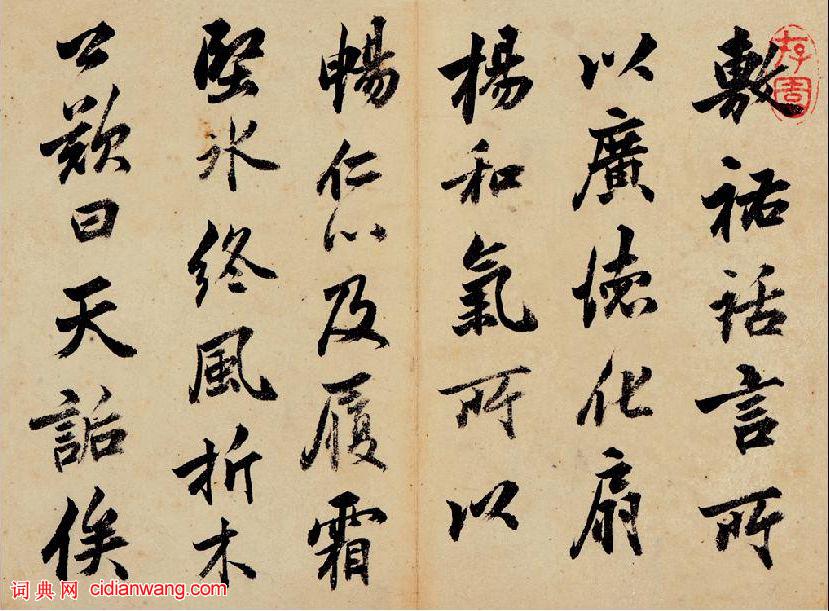 敷祐話言所
以廣德化扇
楊和氣所以
暢仁心及履霜
堅冰終風折木
公歎曰天詬俟
词典网 cidianwang.com